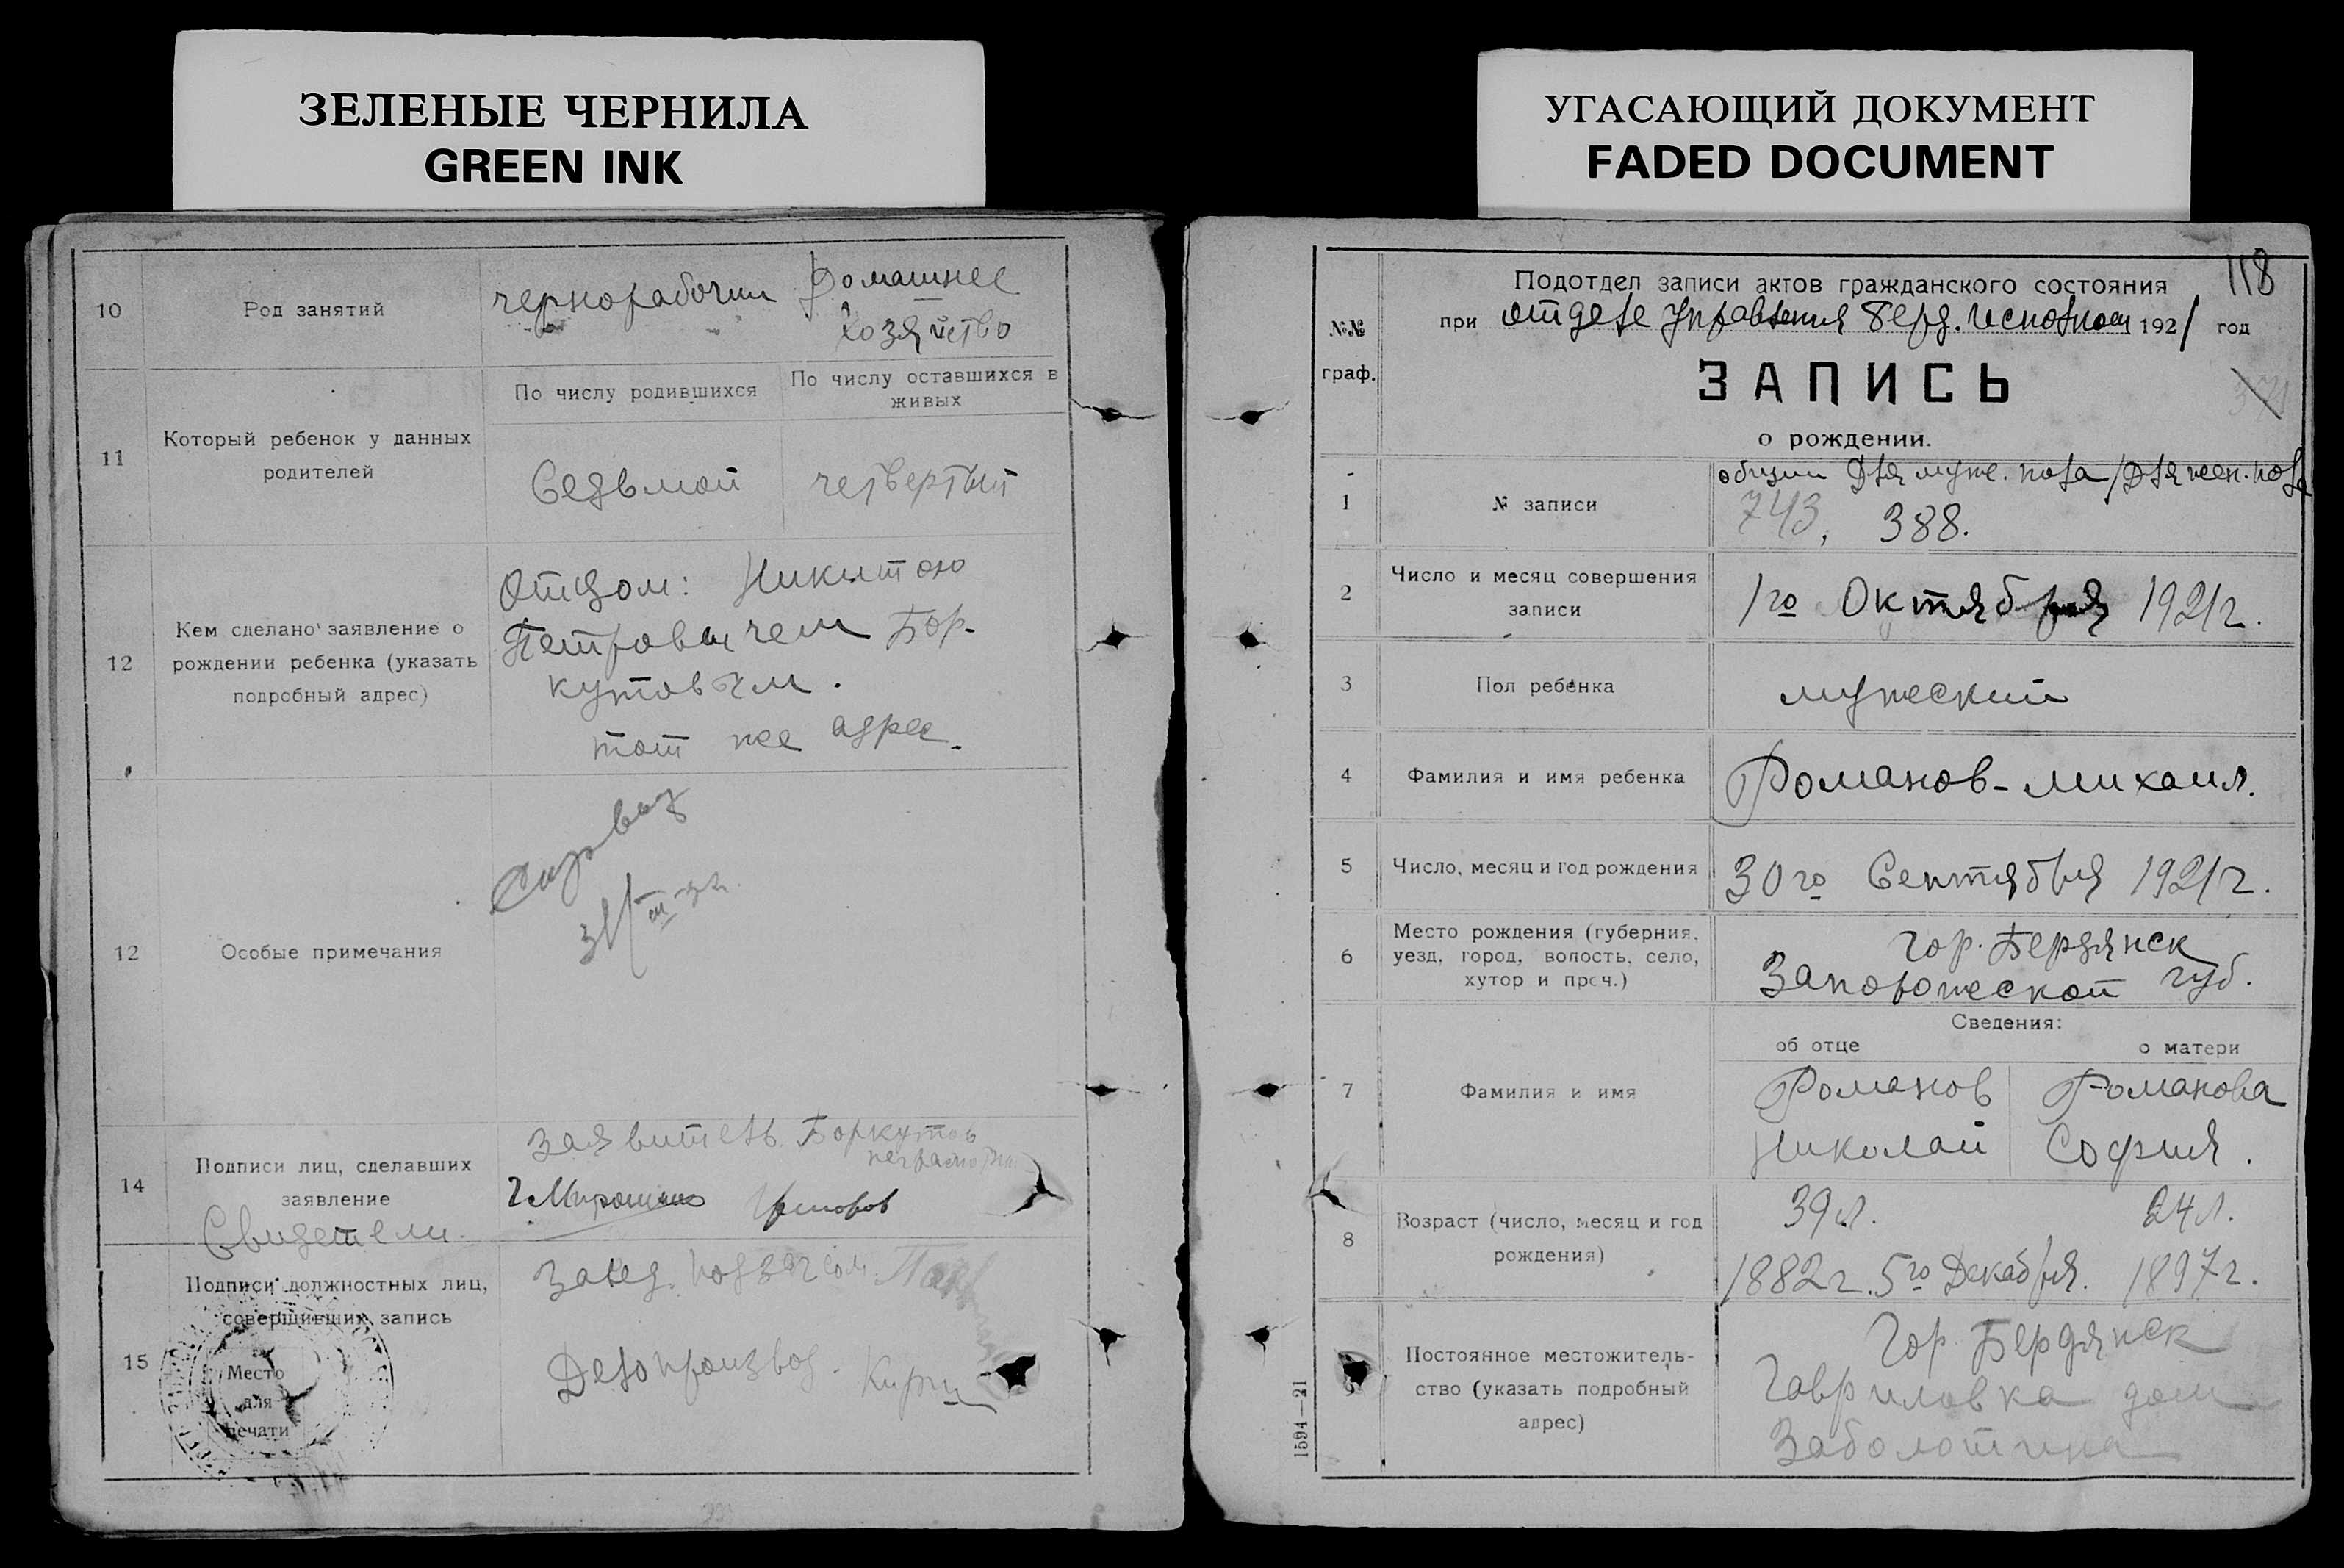 ЗЕЛЕНЫЕ ЧЕРНИЛА
GREEN INK
10
Род занятий
чернорабочии
Домашнее
хозяйство
11
Который ребенок у данных
родителей
По числу родившихся
По числу оставшихся в
живых
Седьмой
четвертый
12
Кем сделано заявление о
рождении ребенка (указать
подробный адрес)
Отцом: Никитою
Петровичем Бор-
кутовым.
тот же адрес.
12
Особые примечания
14
Подписи лиц, сделавших
заявление
Свидетели.
заявитель Боркутов
неграмотный
15
Подписи должностных лиц,
совершивших запись
Место
для
печати
Завед. подзагсом
Делопроизвод.
УГАСАЮЩИЙ ДОКУМЕНТ
FADED DOCUMENT
118
№№
граф.
Подотдел записи актов гражданского состояния
при отделе Управления Берд. Исполком 1921 год
ЗАПИСЬ
о рождении.
1
№ записи
общии Для муж. пола/Для жен. пола
743, 388.
2
Число и месяц совершения
записи
1го Октября 1921г.
3
Пол ребенка
мужеский
4
Фамилия и имя ребенка
Романов-Михаил.
5
Число, месяц и год рождения
30го Сентября 1921г.
6
Место рождения (губерния,
уезд, город, волость, село,
хутор и проч.)
гор. Бердянск
Запорожеской губ.
Сведения:
об отце
о матери
7
Фамилия и имя
Романов
Николай
Романова
София.
8
Возраст (число, месяц и год
рождения)
39л.
24л.
1882г. 5го Декабря.
1897г.
9
Постоянное местожитель-
ство (указать подробный
адрес)
Гор. Бердянск
Гавриловка дом
Заболотчина
1594—21